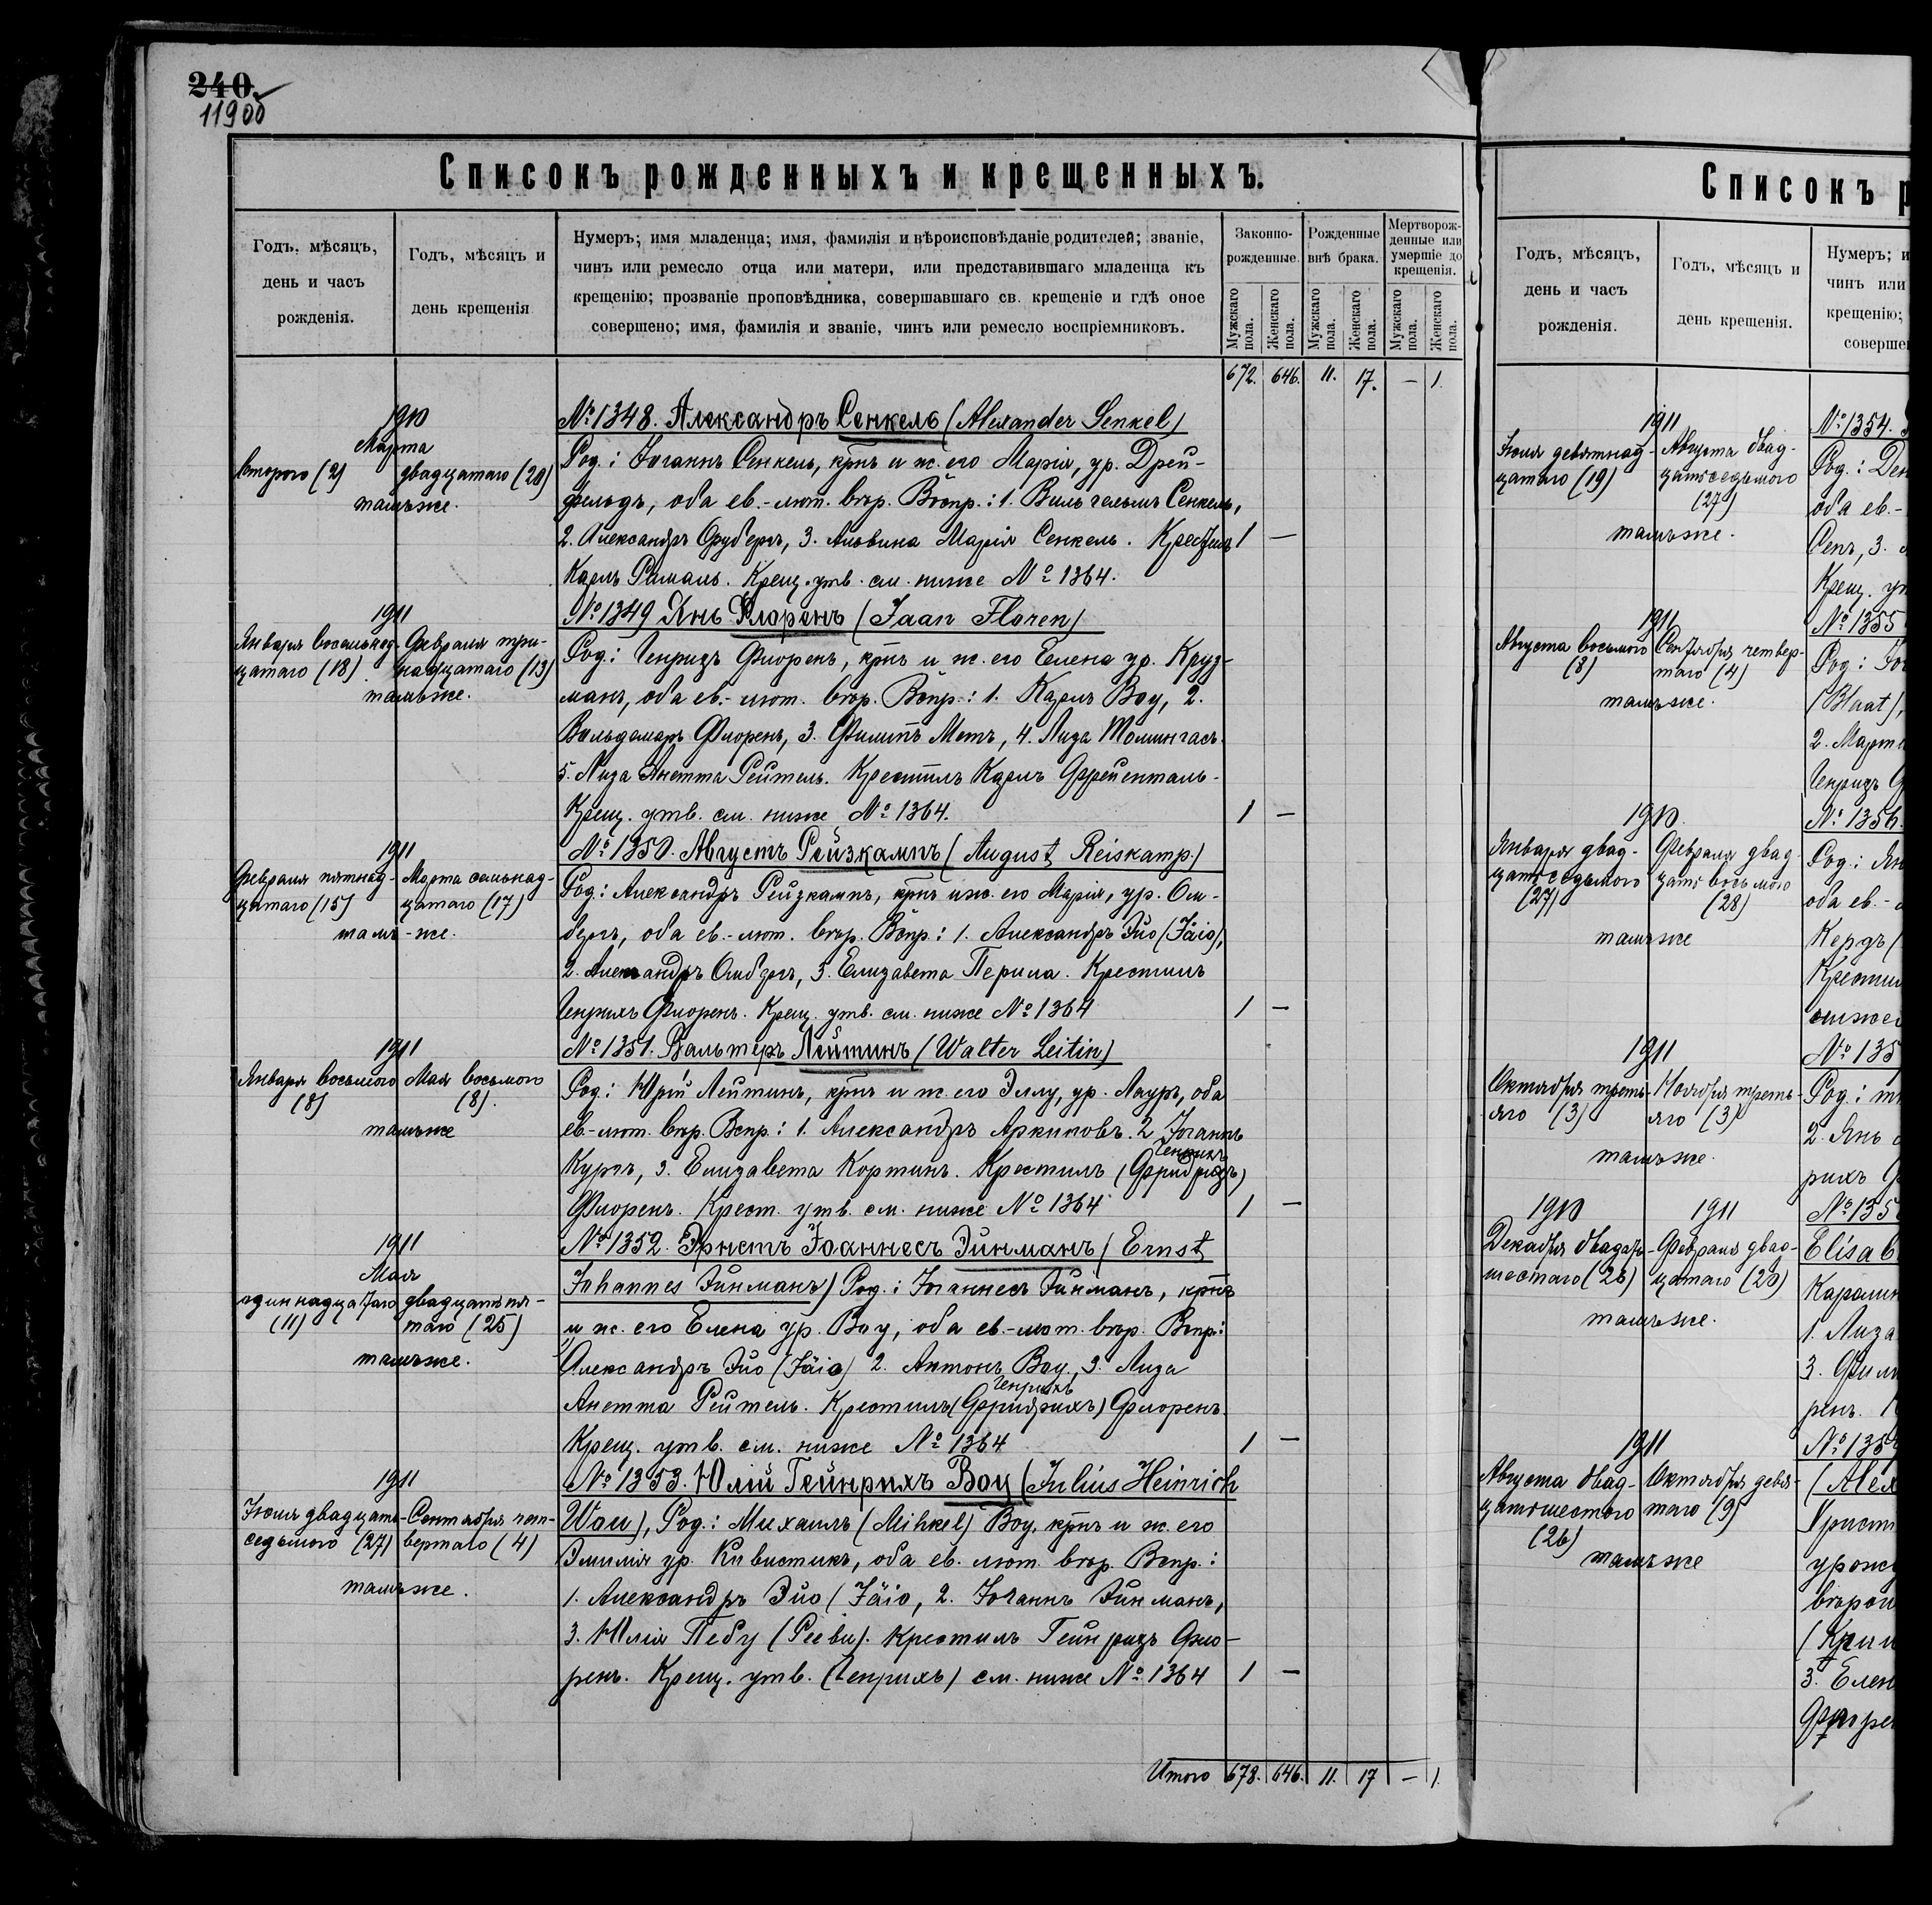 240.
11900
Списокъ рожденныхъ и крещенныхъ.
Годъ, мѣсяцъ, день и часъ рожденія.
Годъ, мѣсяцъ и день крещенія
Нумеръ; имя младенца; имя, фамилія и вѣроисповѣданіе родителей; званіе,
чинъ или ремесло отца или матери, или представившаго младенца къ
крещенію; прозваніе проповѣдника, совершавшаго св. крещеніе и гдѣ оное
совершено; имя, фамилія и званіе, чинъ или ремесло воспріемниковъ.
Законно-рожденные.
Рожденные внѣ брака.
Мертворож-денные или умершіе до крещенія.
Мужскаго пола. Женскаго пола. Мужскаго пола. Женскаго пола. Мужскаго пола. Женскаго пола.
672. 646. 11. 17. – 1.
1910
Марта
второго (2) двадцатаго (20)
тамъ-же.
№ 1348. Александръ Сенкель (Alexander Senkel)
Род.: Іоганнъ Сенкель, крнъ и ж. его Марія, ур. Дрей-
фельдъ, оба ев.-лют. вѣр. Воспр.: 1. Вильгельмъ Сенкель,
2. Александръ 3. Альвина Марія Сенкель. Крестилъ 1 –
Карлъ Крещ. утв. см. ниже № 1364.
1911
Января восемнад- Февраля три-
цатаго (18) надцатаго (13)
тамъ-же.
№ 1349 Янъ Флоренъ (Jaan Floren)
Род.: Генрихъ Флоренъ, крнъ и ж. его Елена ур. Круз-
манъ, оба ев.-лют. вѣр. Вспр.: 1. Карлъ Воу, 2.
Вольдемаръ Флоренъ, 3. Филиппъ Метъ, 4. Лиза Томингасъ.
5. Лиза Анетта Рейтель. Крестилъ Карлъ Фрейенталь.
Крещ. утв. см. ниже № 1364. 1 –
1911
Февраля пятнад- Марта семнад-
цатаго (15) цатаго (17)
тамъ-же.
№ 1350. Августъ Рейзкампъ (August Reiskamp.)
Род.: Александръ Рейзкампъ, крнъ и ж. его Марія, ур. Ом-
бергъ, оба ев.-лют. вѣр. Вспр.: 1. Александръ Эйо (Jäio),
2. Александръ Омбергъ, 3. Елизавета Перила. Крестилъ
Генрихъ Флоренъ. Крещ. утв. см. ниже № 1364 1 –
1911
Января восьмого Мая восьмого
(8) (8).
тамъ же
№ 1351. Вальтеръ Лейтинъ (Walter Leitin)
Род.: Юрій Лейтинъ, крнъ и ж. его Эллу, ур. Лауръ, оба
ев.-лют. вѣр. Вспр.: 1. Александръ Архиповъ. 2 Іоганнъ
Генрихъ
Кургъ, 3. Елизавета Кортинъ. Крестилъ (Фридрихъ)
Флоренъ. Крест. утв. см. ниже № 1364 1 –
1911
Мая
одиннадцатаго двадцать пя-
(11) таго (25)
тамъ-же.
№ 1352. Эрнстъ Іоаннесъ Эйнманъ (Ernst
Johannes Эйнманъ) Род.: Іоганнесъ Эйнманъ, крнъ
и ж. его Елена ур. Воу, оба ев.-лют. вѣр. Вспр.:
Александръ Эйо (Jäio) 2. Антонъ Воу, 3. Лиза
Генрихъ
Анетта Рейтель. Крестилъ (Фридрихъ) Флоренъ.
Крещ. утв. см. ниже № 1364 1 –
1911
Іюля двадцать- Сентября чет-
седьмого (27) вертаго (4)
тамъ-же.
№ 1353. Юлій Гейнрихъ Воу (Julius Heinrich
Wou), Род.: Михаилъ (Mihkel) Воу, крнъ и ж. его
Эмилія ур. Кивистикъ, оба ев. лют. вѣр. Вспр.:
1. Александръ Эйо (Jäio, 2. Іоганнъ Эйнманъ,
3. Юлія Пебу Крестилъ Гейнрихъ Фло-
ренъ. Крещ. утв. (Генрихъ) см. ниже № 1364 1 –
Итого 678. 646. 11. 17 – 1.
Списокъ р
Годъ, мѣсяцъ, день и часъ рожденія.
Годъ, мѣсяцъ и день крещенія.
Нумеръ; и
чинъ или
крещенію;
соверше
1911
Іюля девятнад- Августа двад-
цатаго (19) цать седьмого
(27)
тамъ-же.
№ 1354.
Род.: Ден
оба ев.-
Сепъ, 3.
Крещ. ут
1911
Августа восьмого Сентября четвер-
(8) таго (4)
тамъ-же.
№ 1355
Род.: Іог
(Blaat),
2. Март
Генрихъ Ф
1910.
Января двад- Февраля двад-
цать седьмого цать восьмого
(27) (28)
тамъ же
№ 1356.
Род.: Ян
оба ев.-
Кердъ (
Крестил
ниже
1911
Октября треть- Ноября треть-
яго (3) яго (3)
тамъ-же.
№ 135
Род.:
2. Янъ
рихъ Ф
1910 1911
Декабря двадцать Февраля двад-
шестаго (26) цатаго (20)
тамъ-же.
№ 135
Elisab
Каролин
1. Лиза
3. Фили
ренъ.
1911
Августа двад- Октября девя-
цать шестого таго (9)
(26)
тамъ же
№ 135
(Alex
Христ
урож
вѣрои
3. Елен
Флоре